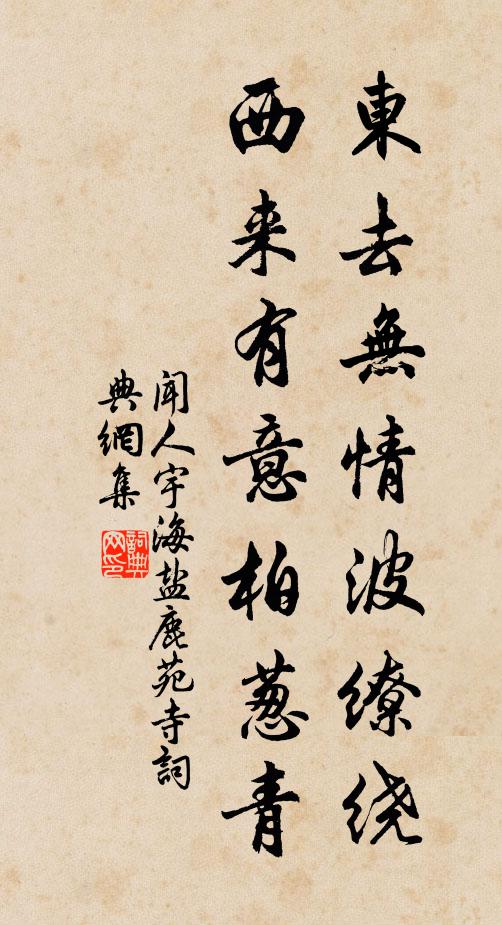 東去無情波繚绕
西来有意柏葱青
闻人宇海盐鹿苑寺詞
典網集
詞典
网印